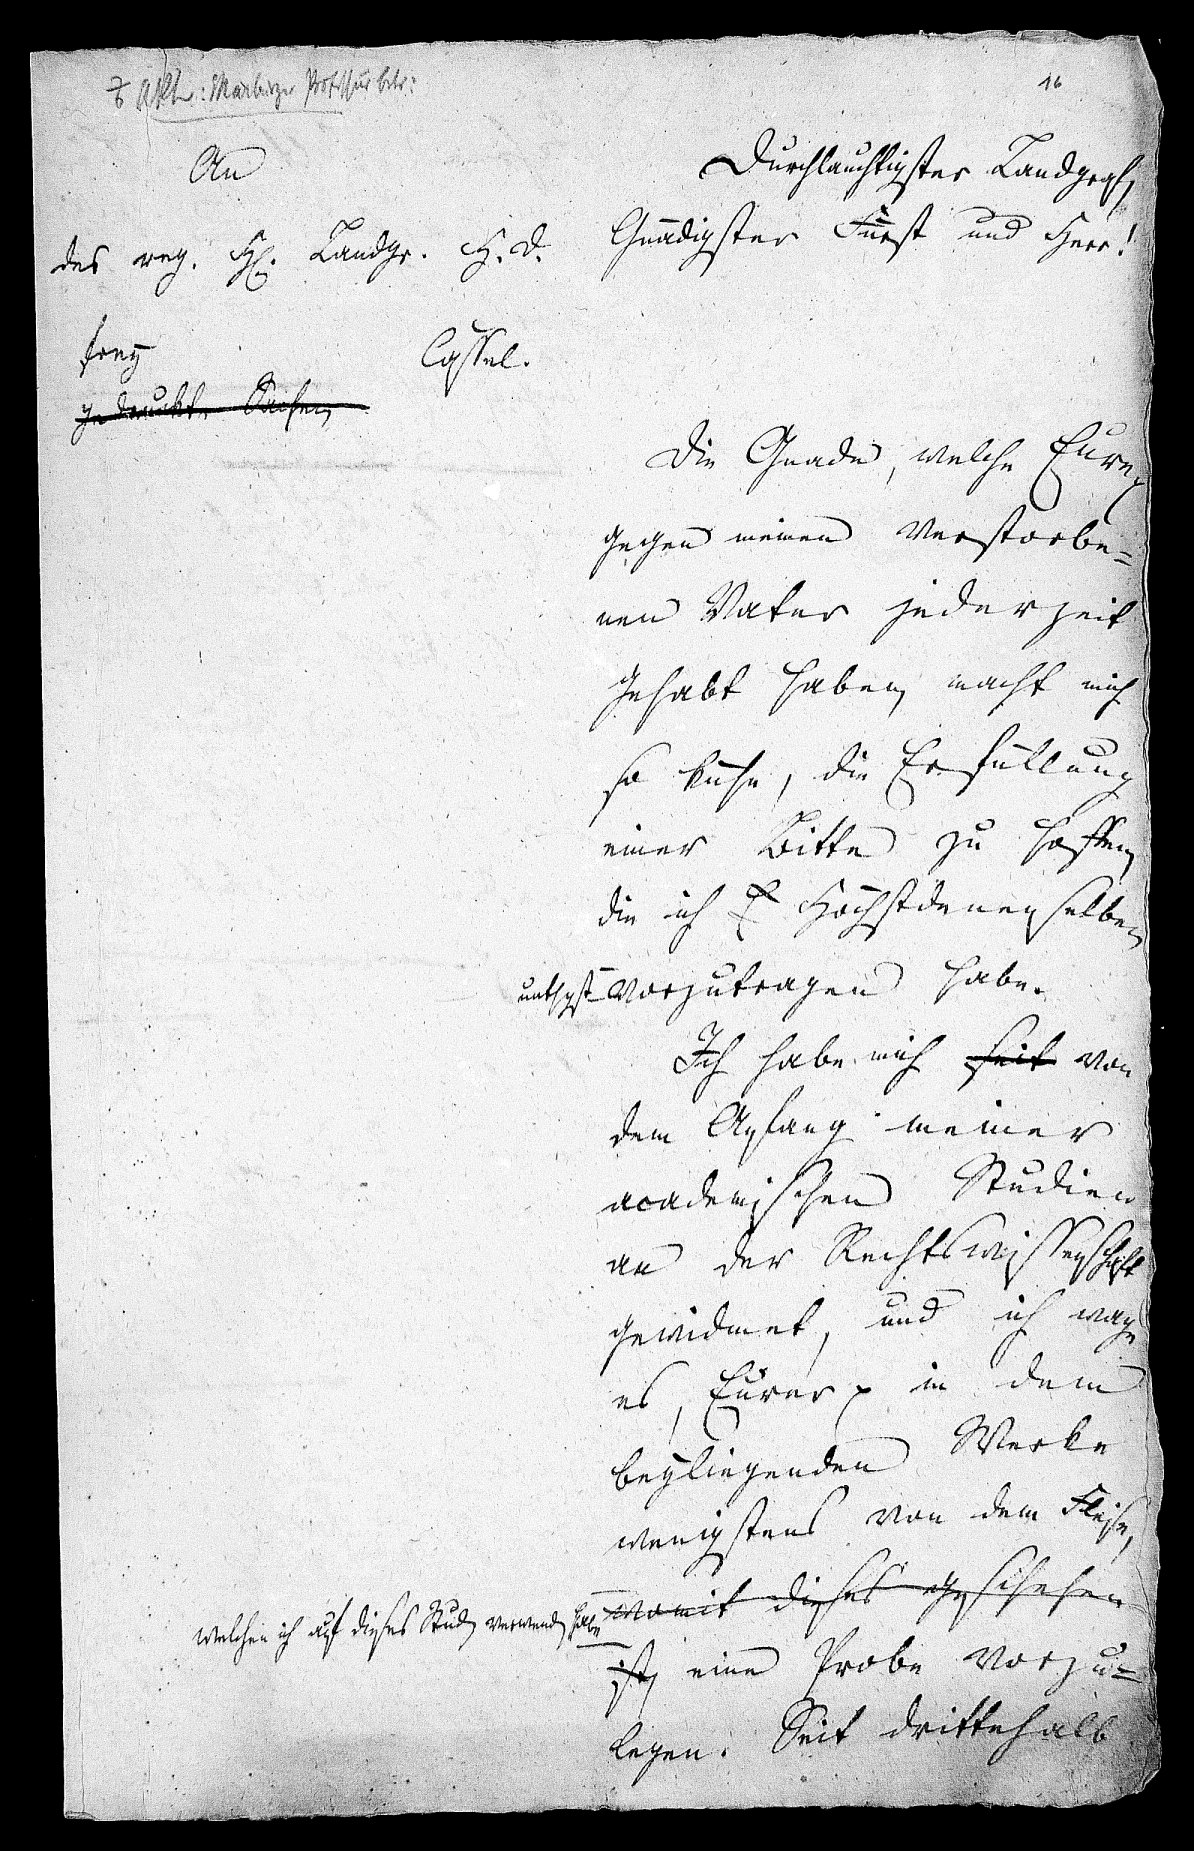 Marburger Professur betr:
16
An
des reg. H. Landgr. H. D.
frey
Cassel.
gedruckte Sachen
Durchlauchtigster Landgraf,
Gnädigster Fürst und Herr!
Die Gnade, welche Eure
gegen meinen verstorbe=
nen Vater jederzeit
gehabt haben, macht mich
so kühn, die Erfüllung
einer Bitte zu hoffen,
die ich Höchstdenenselben
unthgst vorzutragen habe.
Ich habe mich seit von
dem Anfang meiner
academischen Studien
an der Rechtswissenschaft
gewidmet, und ich wage
es, Eurer in dem
beyliegenden Werke
wenigstens von dem Fleise,
womit dieses geschehen
welchen ich auf dieses Stud verwend habe
ist, eine Probe vorzu=
legen. Seit drittehalb